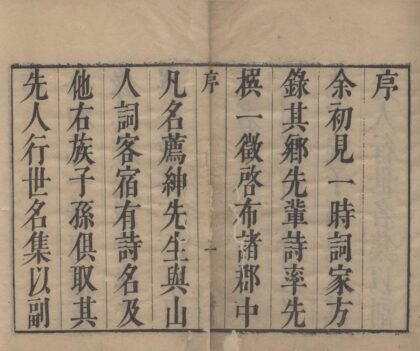 序
余初見一時詞家方
錄其鄉先輩詩率先
撰一徵啓布諸郡中
序
一
凡名薦紳先生與山
人詞客宿有詩名及
他右族子孫俱取其
先人行世名集以副